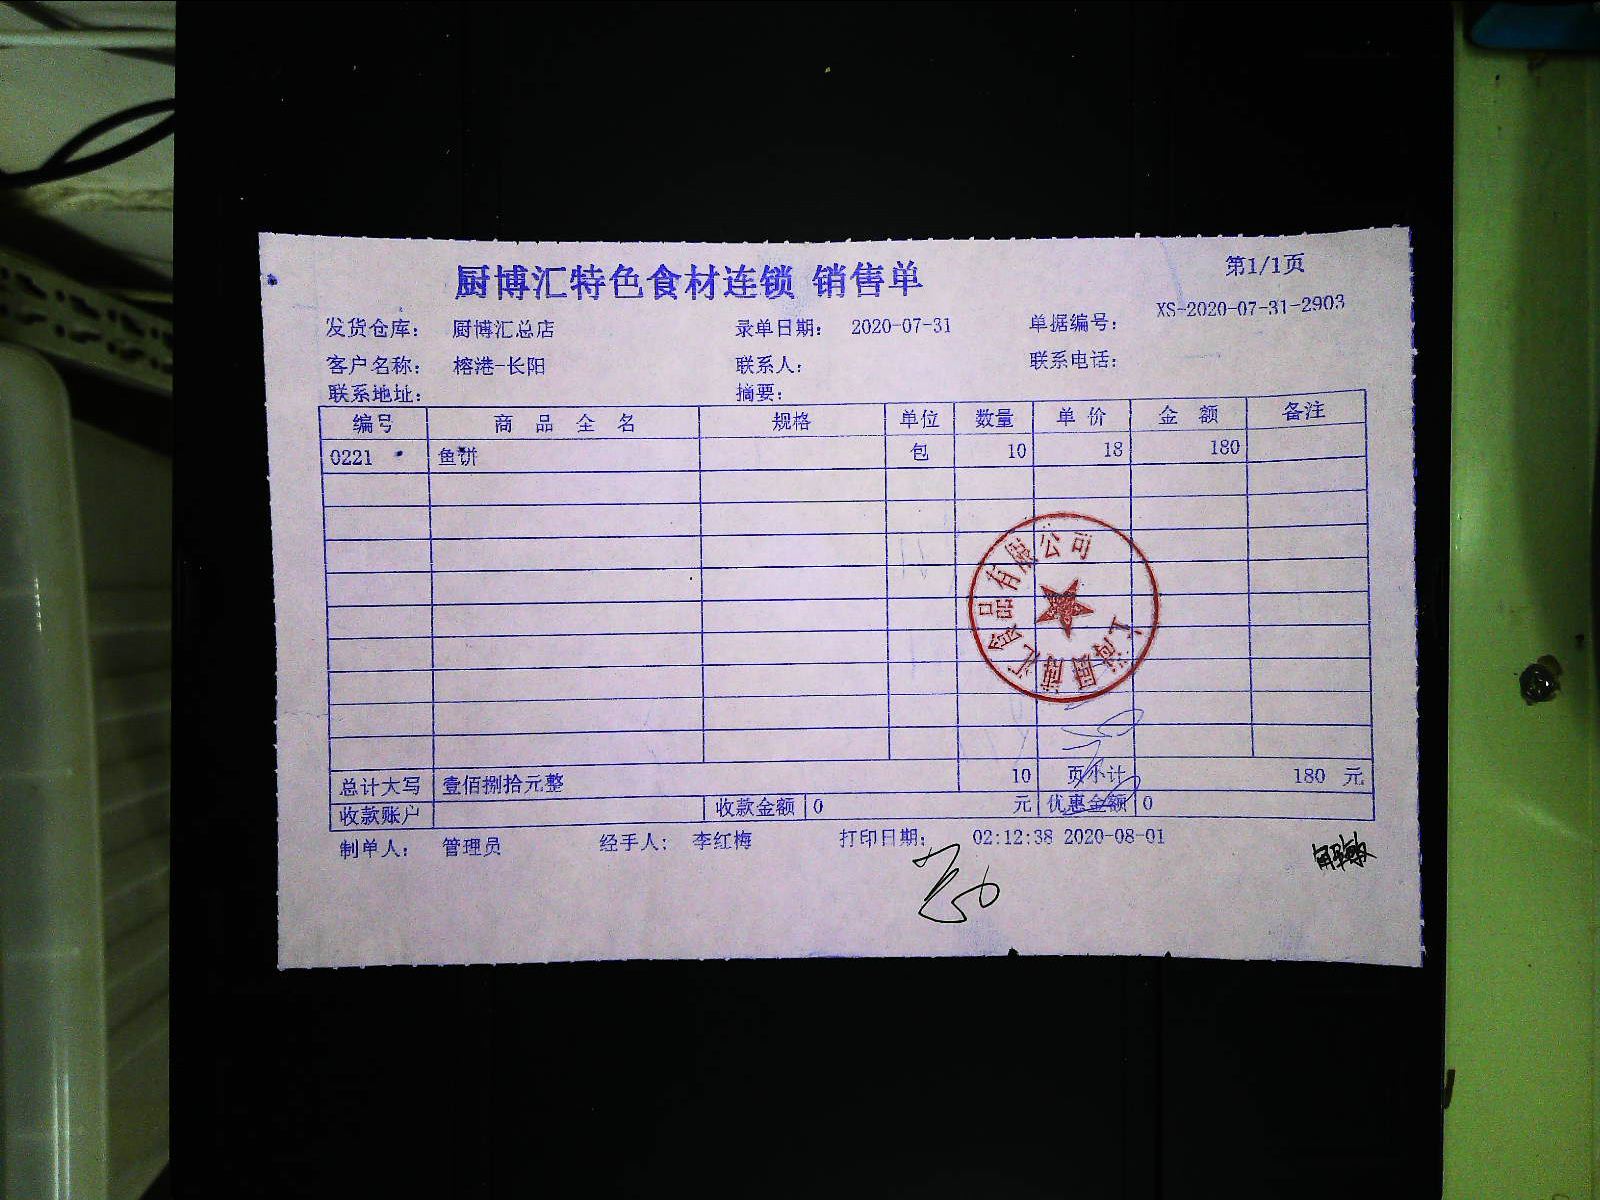 厨博汇特色食材连锁 销售单
第1/1页
发货仓库： 厨博汇总店 录单日期： 2020-07-31 单据编号： XS-2020-07-31-2903
客户名称： 榕港-长阳 联系人： 联系电话：
联系地址： 摘要：
编号 商品全名 规格 单位 数量 单价 金额 备注
0221 鱼饼 包 10 18 180
上海厨博汇食品有限公司
总计大写 壹佰捌拾元整 10 页小计 180 元
收款账户 收款金额 0 元 优惠金额 0
制单人： 管理员 经手人： 李红梅 打印日期： 02:12:38 2020-08-01